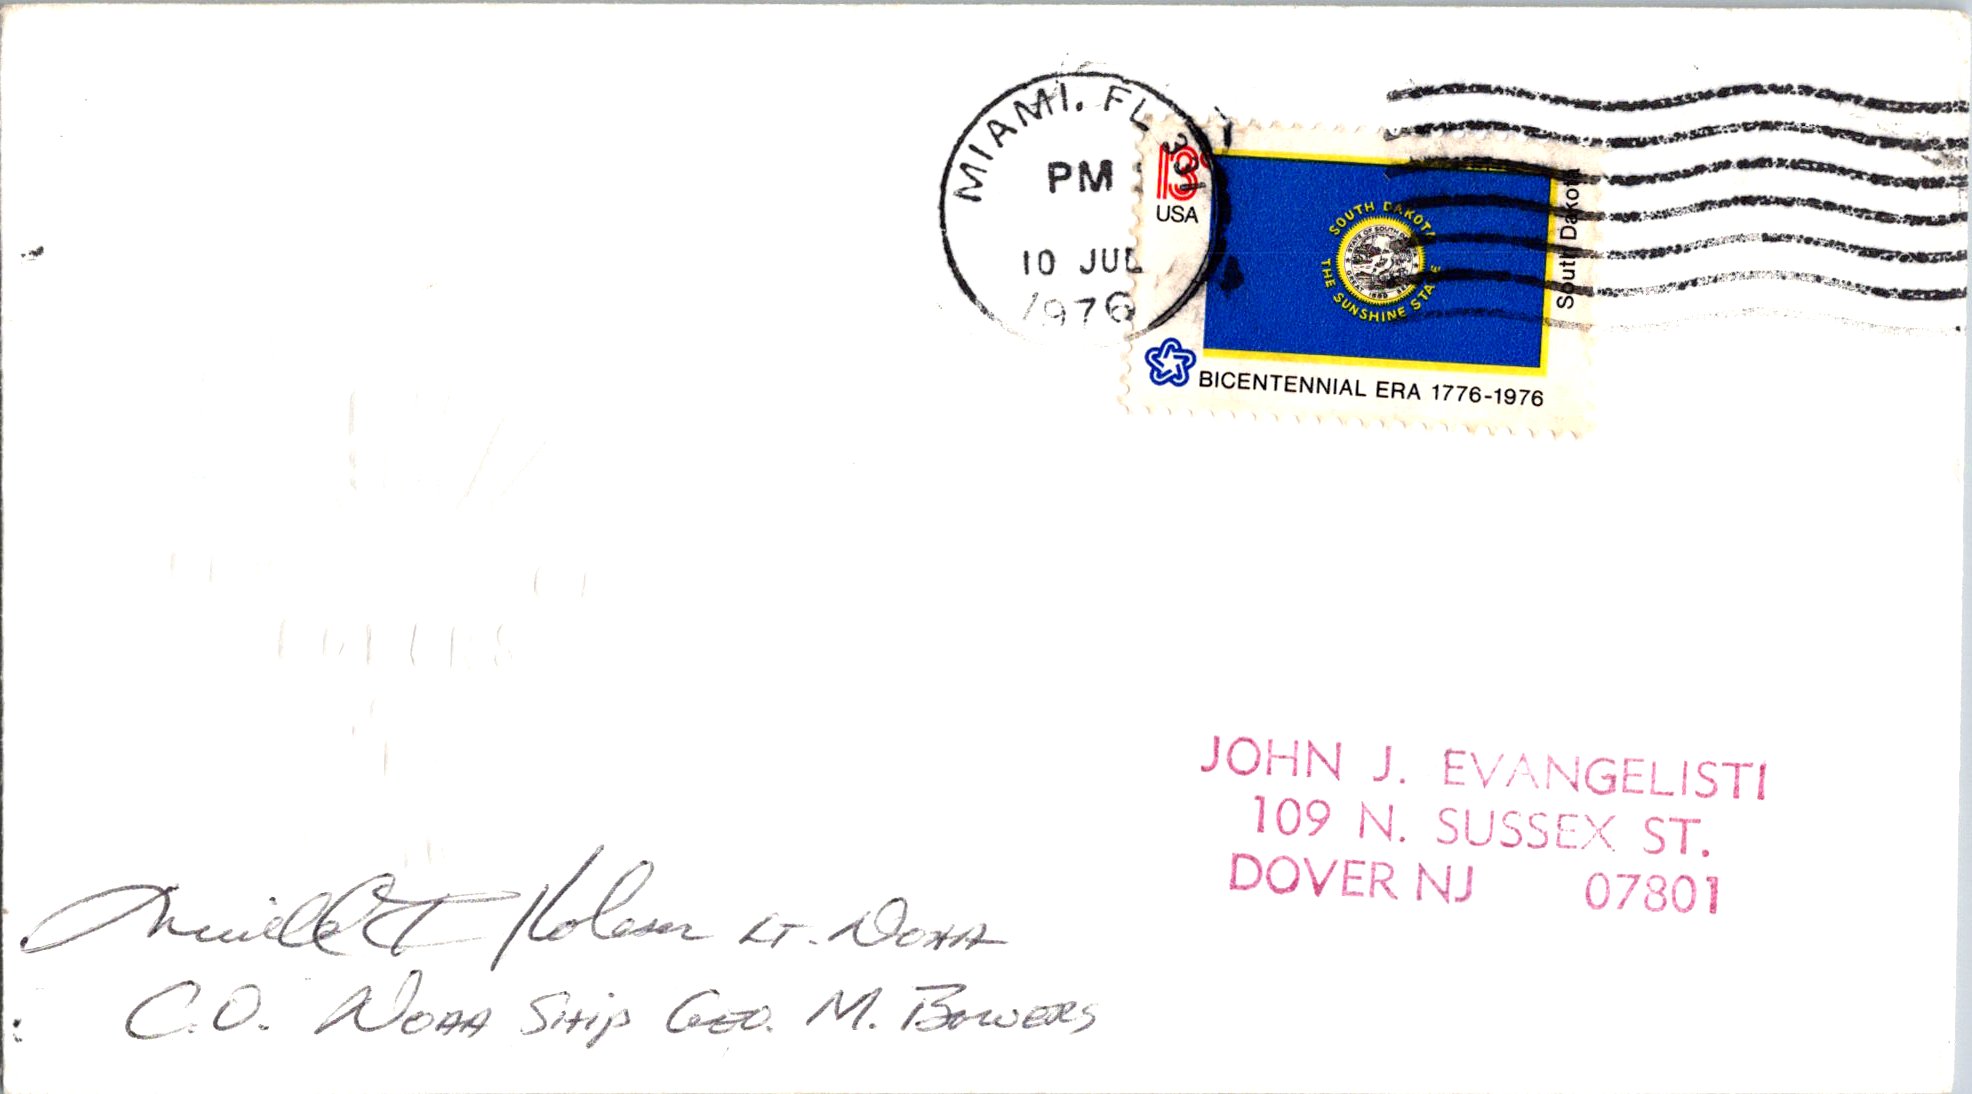 MIAMI, FL 331
PM
10 JUL
1976
13c
USA
SOUTH DAKOTA
THE SUNSHINE STATE
South Dakota
BICENTENNIAL ERA 1776-1976
JOHN J. EVANGELISTI
109 N. SUSSEX ST.
DOVER NJ 07801
LT. NOAA
C.O. NOAA SHIP GEO. M. BOWERS